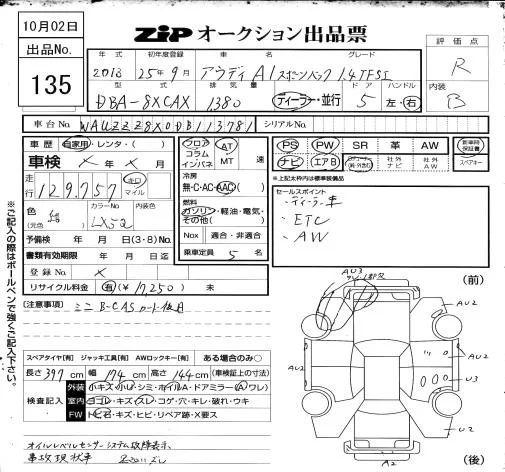 10月02日
ZIP オークション出品票
出品No.
135
評価点
R
内装
B
年式 初年度登録 車名 グレード
2013 25年9月 アウディA1 スポーツバック 1.4TFSI
型式 排気量 ドア ハンドル
DBA-8XCAX 1380 ディーラー・並行 5 左・右
車台No. WAUZZZ8X0DB113781 シリアルNo.
車歴 自家用・レンタ・( )
車検 × 年 × 月
走行 129,757 キロ マイル
色 (元色) カラーNo. LX5Q 内装色
予備検 年 月 日(3・8)No.
書類有効期限 年 月 日迄
登録No. ×
リサイクル料金 有(¥ 17,250 ) 未
フロア コラム インパネ AT MT 速
冷房
無・C・AC・AAC( )
燃料
ガソリン・軽油・電気・その他( )
Nox 適合・非適合
乗車定員 5 名
PS PW SR 革 AW 新車時保証書
ナビ エアB 社外ナビ 社外AW スペアキー
※上記太枠内は標準装備品
セールスポイント
・ディーラー車
・ETC
・AW
[注意事項] ミニB-CASカード欠品
※ご記入の際はボールペンで強くご記入下さい。
スペアタイヤ[有] ジャッキ工具[有] AWロックキー[有] ある場合のみ○
長さ 397 cm 幅 174 cm 高さ 144 cm (車検証上の寸法)
検査記入
外装 小キズ・小凹・シミ・ホイルA・ドアミラー(A)ワレ)
室内 ヨゴレ・キズ・スレ・コゲ・穴・キレ・破れ・ウキ
FW トビ石・キズ・ヒビ・リペア跡・X要ス
オイルレベルセンサーシステム故障表示
事故現状車
(前)
AU3
AU2
AU2
AU2
U3
U2
A2
(後)